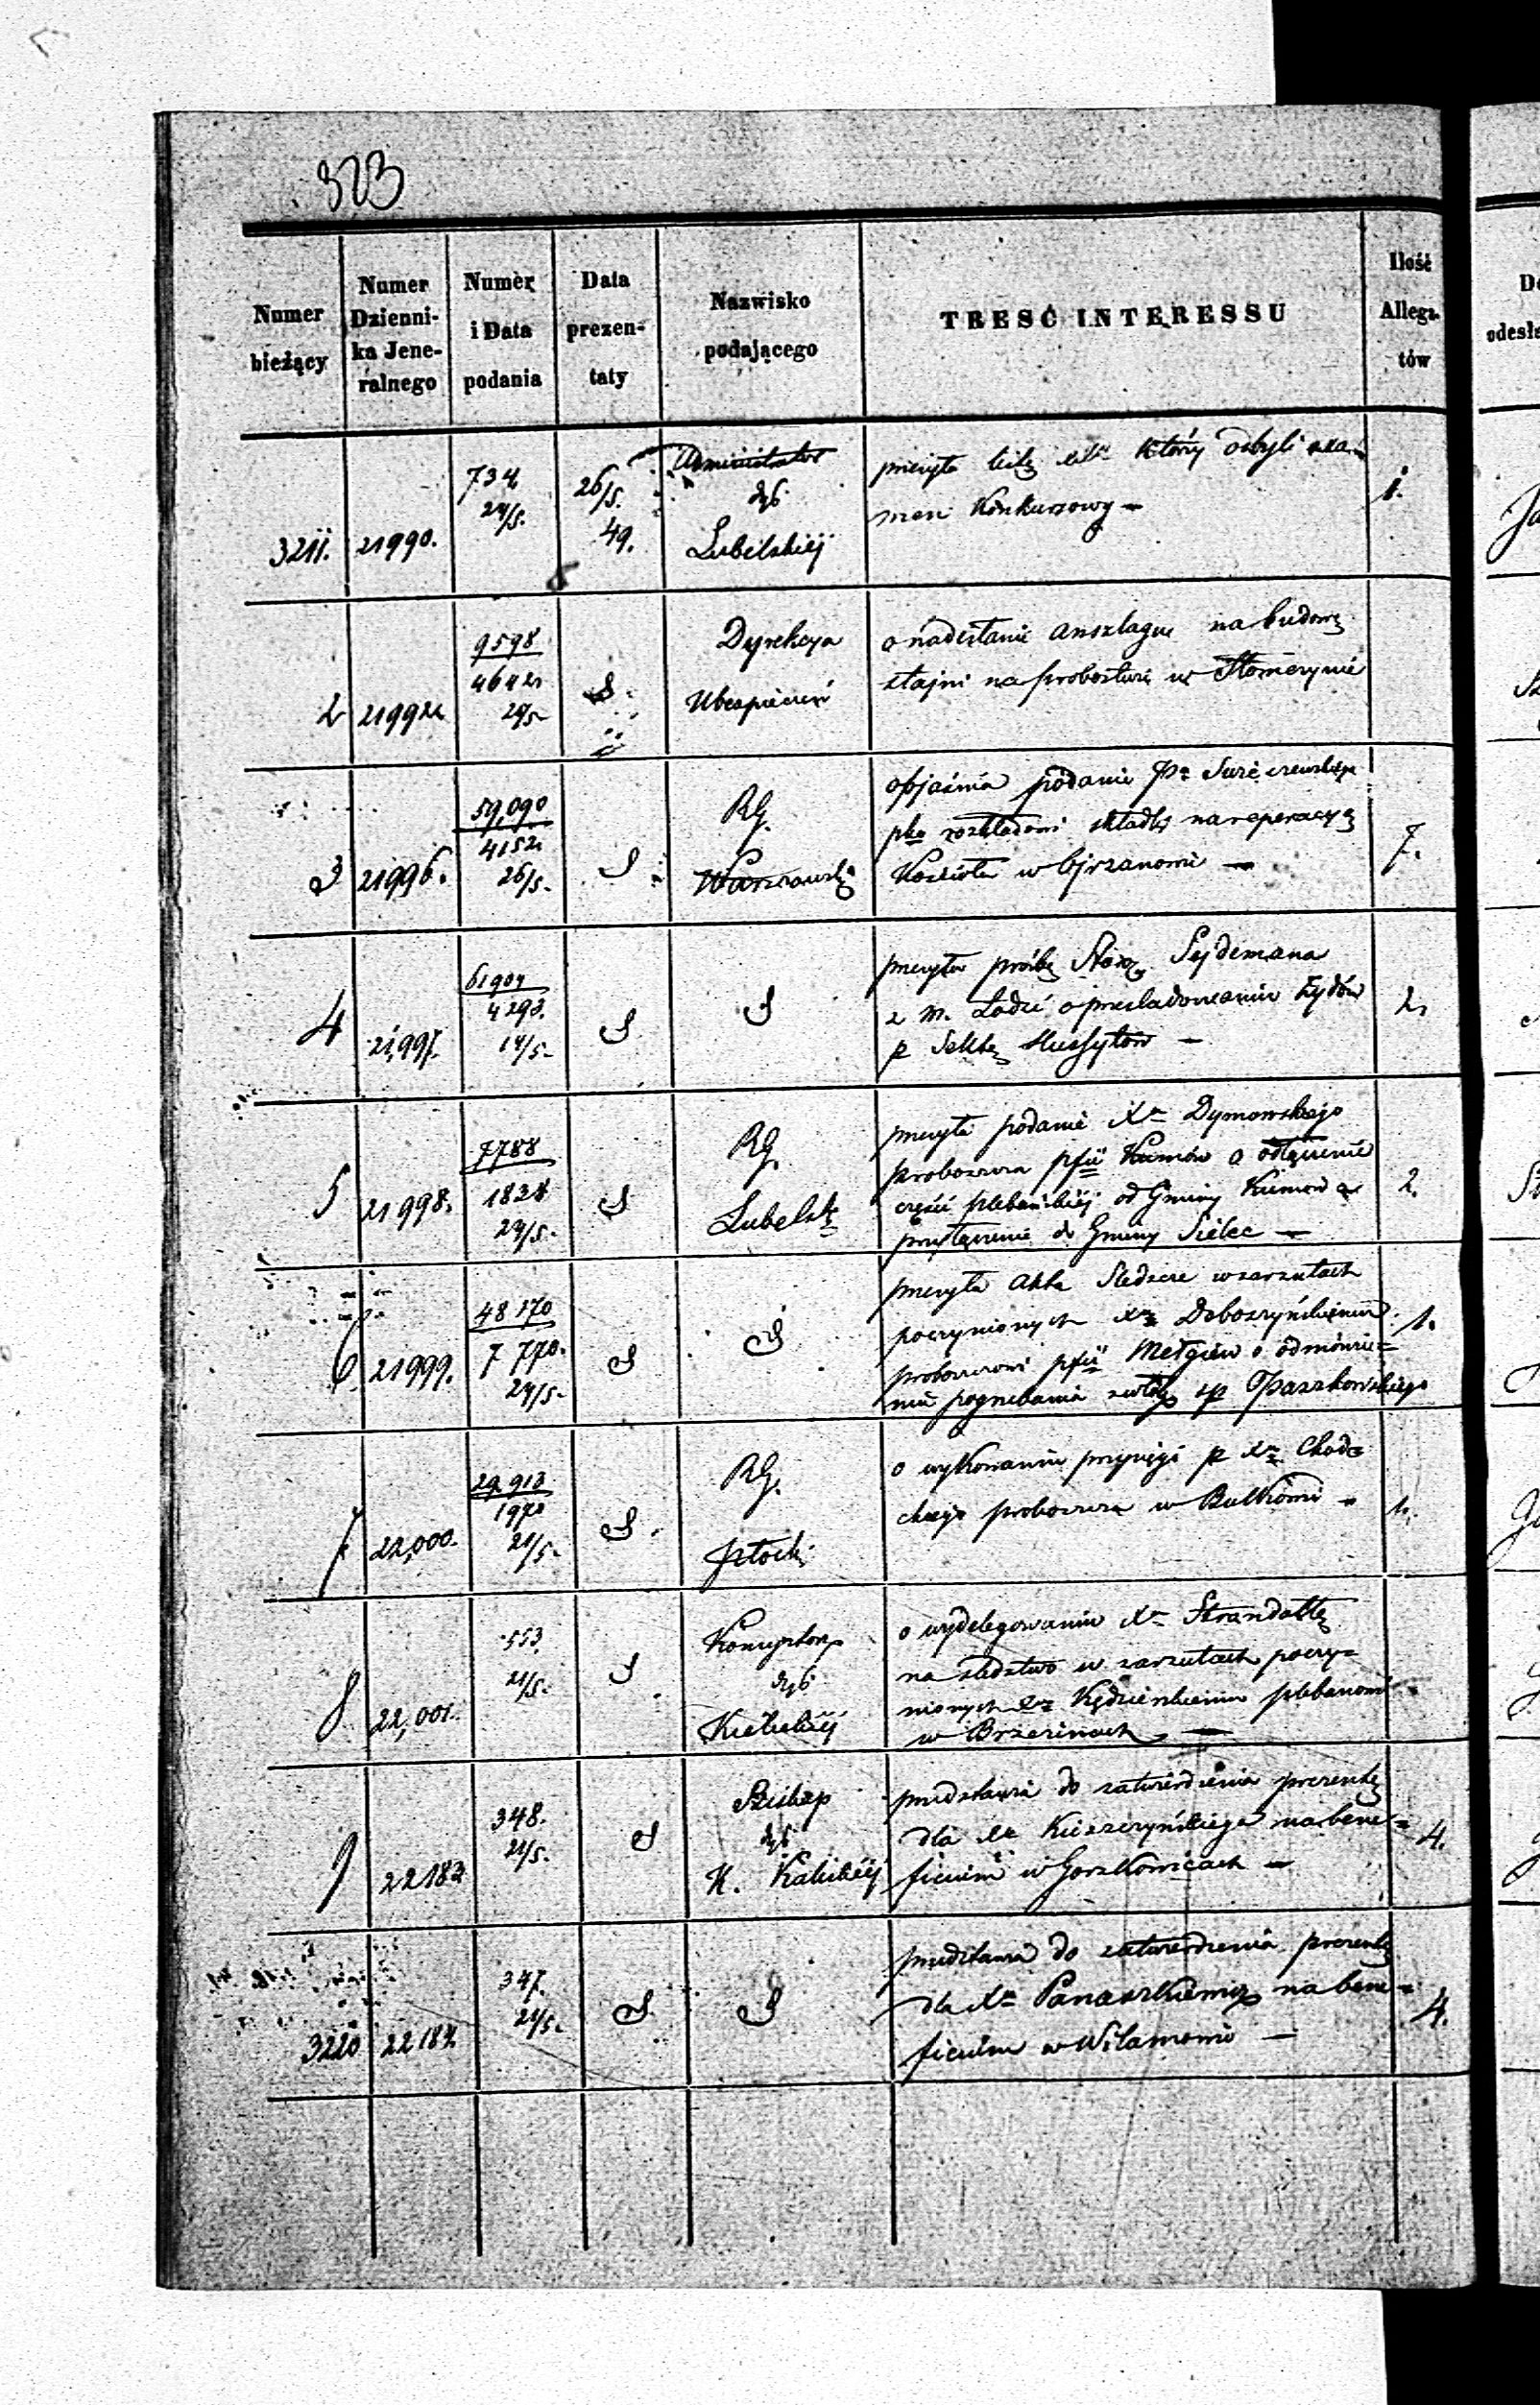 323
Numer bieżący
Numer Dzienni-ka Jene-ralnego
Numer i Data podania
Data prezen-taty
Nazwisko podającego
TRESĆ INTERESSU
Ilość Allega-tów
3211. 21990. 734 24/5. 26/5. 49. Administrator dyć. Lubelskiéj
przesyła listę którzy odbyli exa-
men Konkursowy — 1.
2 21992 9598 4642 24/5 S Dyrekcya Ubezpieczeń
o nadesłanie anszlagu na budowę
stajni na probostwie w Słomczynie
3 21996. 59,090 4152 26/5. S RG. Warszawski
objaśnia podanie
pko rozkładowi składki na reperacyą
Kościoła w 7.
4 21,997. 61904 4293. 14/5. S S
przesyła prośbę Staroz. Sejdemana
z M. Łodzi o prześladowaniu Żydów
p Sektę Hussytów — 2
5 21998. 7788 1828 24/5. S RG. Lubelski
przesyła podanie Xa Dymowskiego
proboszcza pfii Kumów o odłączenie
części plebańskiéj od Gminy Kumów a
przyłączenie do Gminy Sielec — 2.
6. 21999. 48170 7770. 24/5. S S
przesyła akta śledcze w zarzutach
poczynionych Xu Doboszyńskiemu
proboszczowi pfii Mełgiew o odmówie-
niu pogrzebania zwłok śp Paszkowskiego 1.
7 22,000. 29,913 1970 21/5. S. RG. Płocki
o wykonaniu przysięgi p Xa Chodz-
kiego proboszcza w Bulkowie — 1.
8 22,001. 553 21/5. S Konsystorz dyć Kieleckiéj
o wydelegowaniu Xa
na śledztwo w zarzutach poczy-
nionych Xu Kędzierskiemu plebanowi
w Brzezinach —
9 22183 348. 21/5. S Biskup dyć K. Kaliskiéj
przedstawia do zatwierdzenia prezentę
dla Xa Kieszczyńskiego na bene-
ficium w Gorzkowicach — 4.
3220 22184 347. 21/5. S. S
przedstawia do zatwierdzenia prezentę
dla Xa Panaszkiewicz na bene-
ficium w Wilamowie — 4.